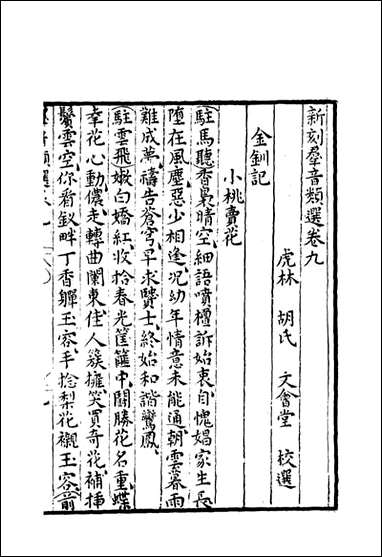 新刻羣音類選卷九
虎林 胡氏 文會堂 校選
金釧記
小桃賣花
(駐馬聽)香裊晴空,細語噴檀訴始衷,自愧娼家生長
墮在風塵,惡少相逢,况幼年情意未能通,朝雲暮雨
難成夢,禱告蒼穹,早求賢士,終始和諧鸞鳳
(駐雲飛)嫩白嬌紅,收拾春光筐篚中,鬬勝花名重,蝶
幸花心動,儂,走轉曲闌東,佳人簇擁,笑買奇花,補揷
鬢雲空,你看釵畔丁香嚲玉容,手捻梨花襯玉容,(前